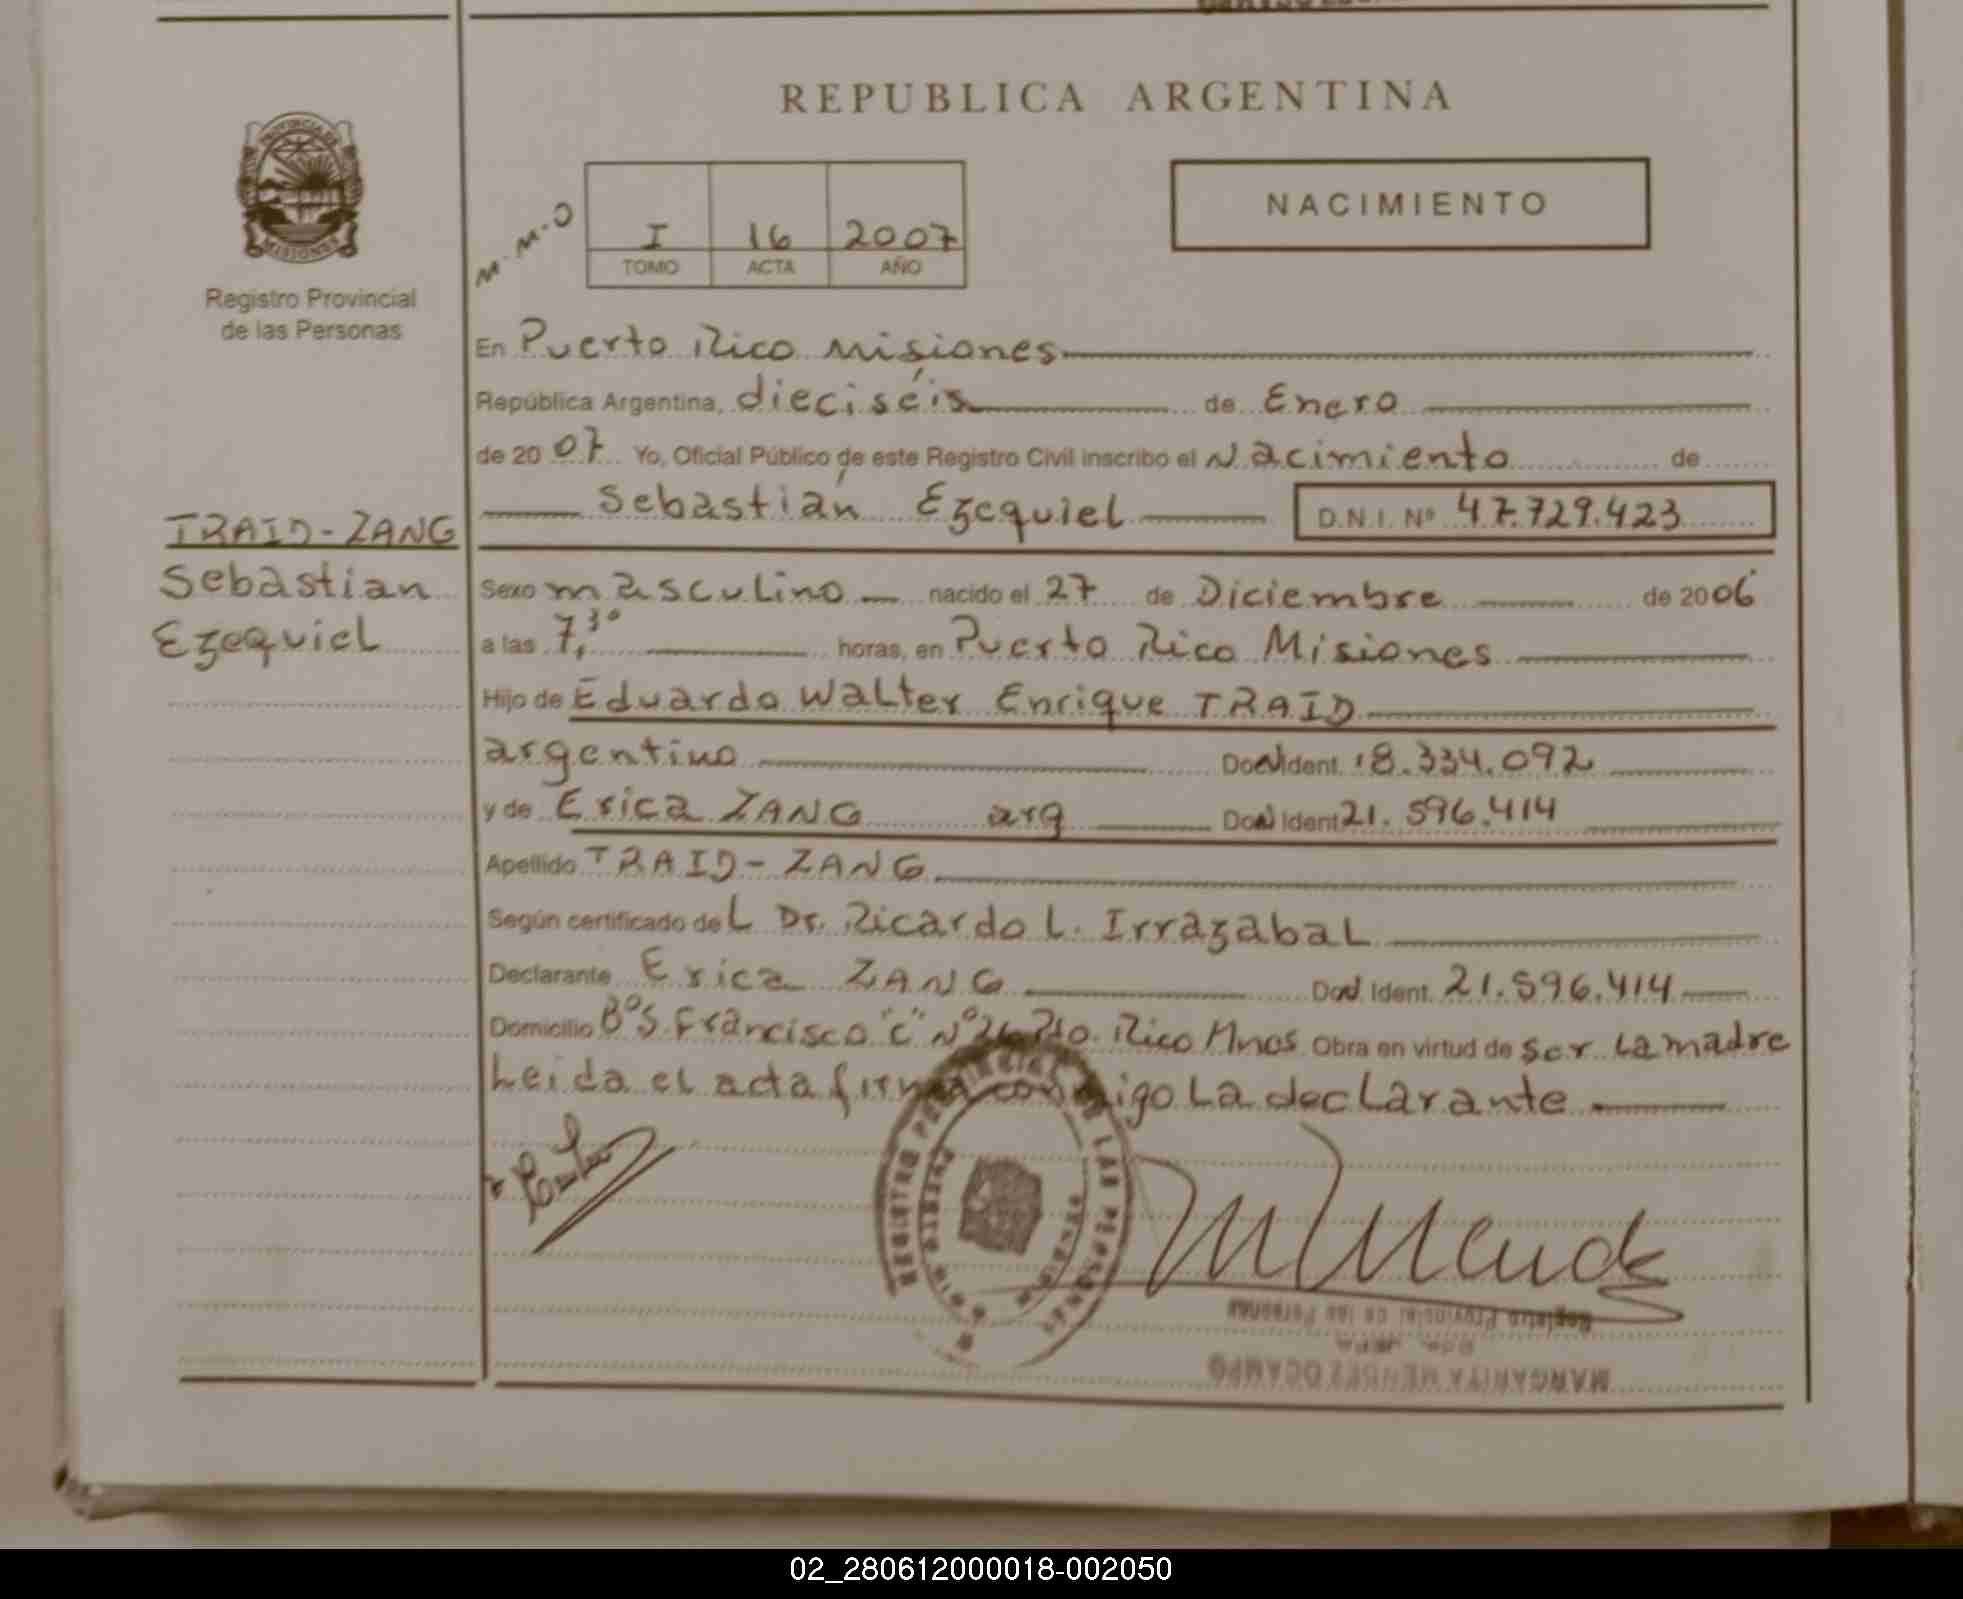 REPUBLICA ARGENTINA
PROVINCIA DE
MISIONES
Registro Provincial
de las Personas
M.M.O
I 16 2007
TOMO ACTA AÑO
NACIMIENTO
En Puerto Rico Misiones
República Argentina, dieciséis de Enero
de 2007 Yo, Oficial Público de este Registro Civil inscribo el Nacimiento de
Sebastián Ezequiel D.N.I. Nº 47.729.423
TRAID-ZANG
Sebastian
Ezequiel
Sexo masculino nacido el 27 de Diciembre de 2006
a las 7,30 horas, en Puerto Rico Misiones
Hijo de Eduardo Walter Enrique TRAID
argentino Ident. 18.334.092
y de Erica ZANG arg Ident 21.596.414
Apellido TRAID-ZANG
Según certificado del Dr. Ricardo L. Irrazabal
Declarante Erica ZANG Ident. 21.596.414
Domicilio BºS. Francisco "C" Nº Pto. Rico Mnes Obra en virtud de ser la madre
Leida el acta firma conmigo la declarante
REGISTRO PROVINCIAL DE LAS PERSONAS
PUERTO RICO
Registro Provincial de las Personas
MARGARITA MENDEZ OCAMPO
02_280612000018-002050